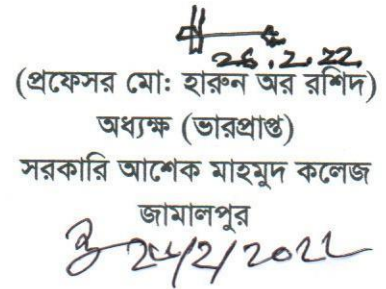 26.2.22
(প্রফেসর মো: হারুন অর রশিদ)
অধ্যক্ষ (ভারপ্রাপ্ত)
সরকারি আশেক মাহমুদ কলেজ
জামালপুর
/2/2022